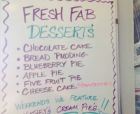 FRESH FAB
DESSERTS
• CHOCOLATE CAKE
• BREAD PUDDING
• BLUEBERRY PIE
• APPLE PIE
• FIVE FRUIT PIE
• CHEESE CAKE
WEEKENDS WE FEATURE
CREAM PIES!!